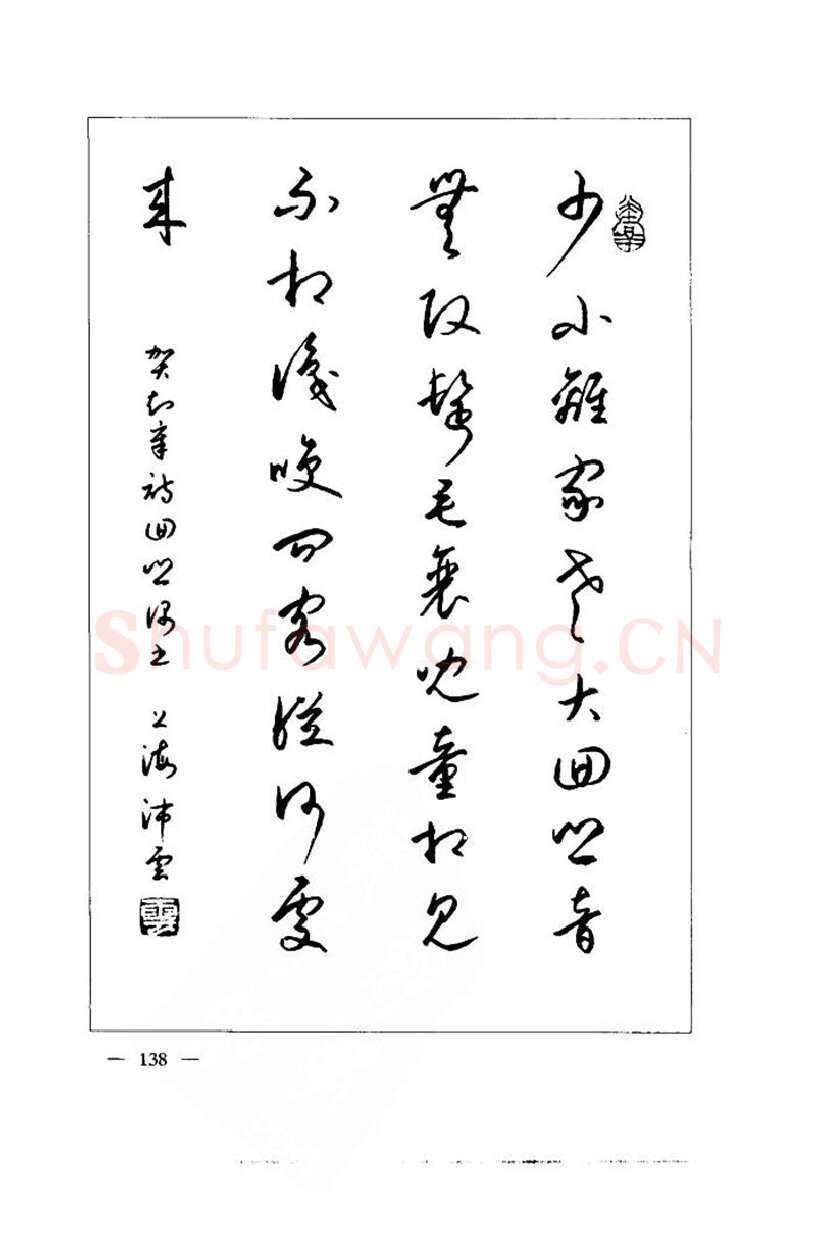 少小離家老大囬鄉音
無改鬢毛衰兒童相見
不相識咲問客從何處
来
賀知章詩囬鄉偶書 上海沛雲
雲
— 138 —
Shufawang.CN